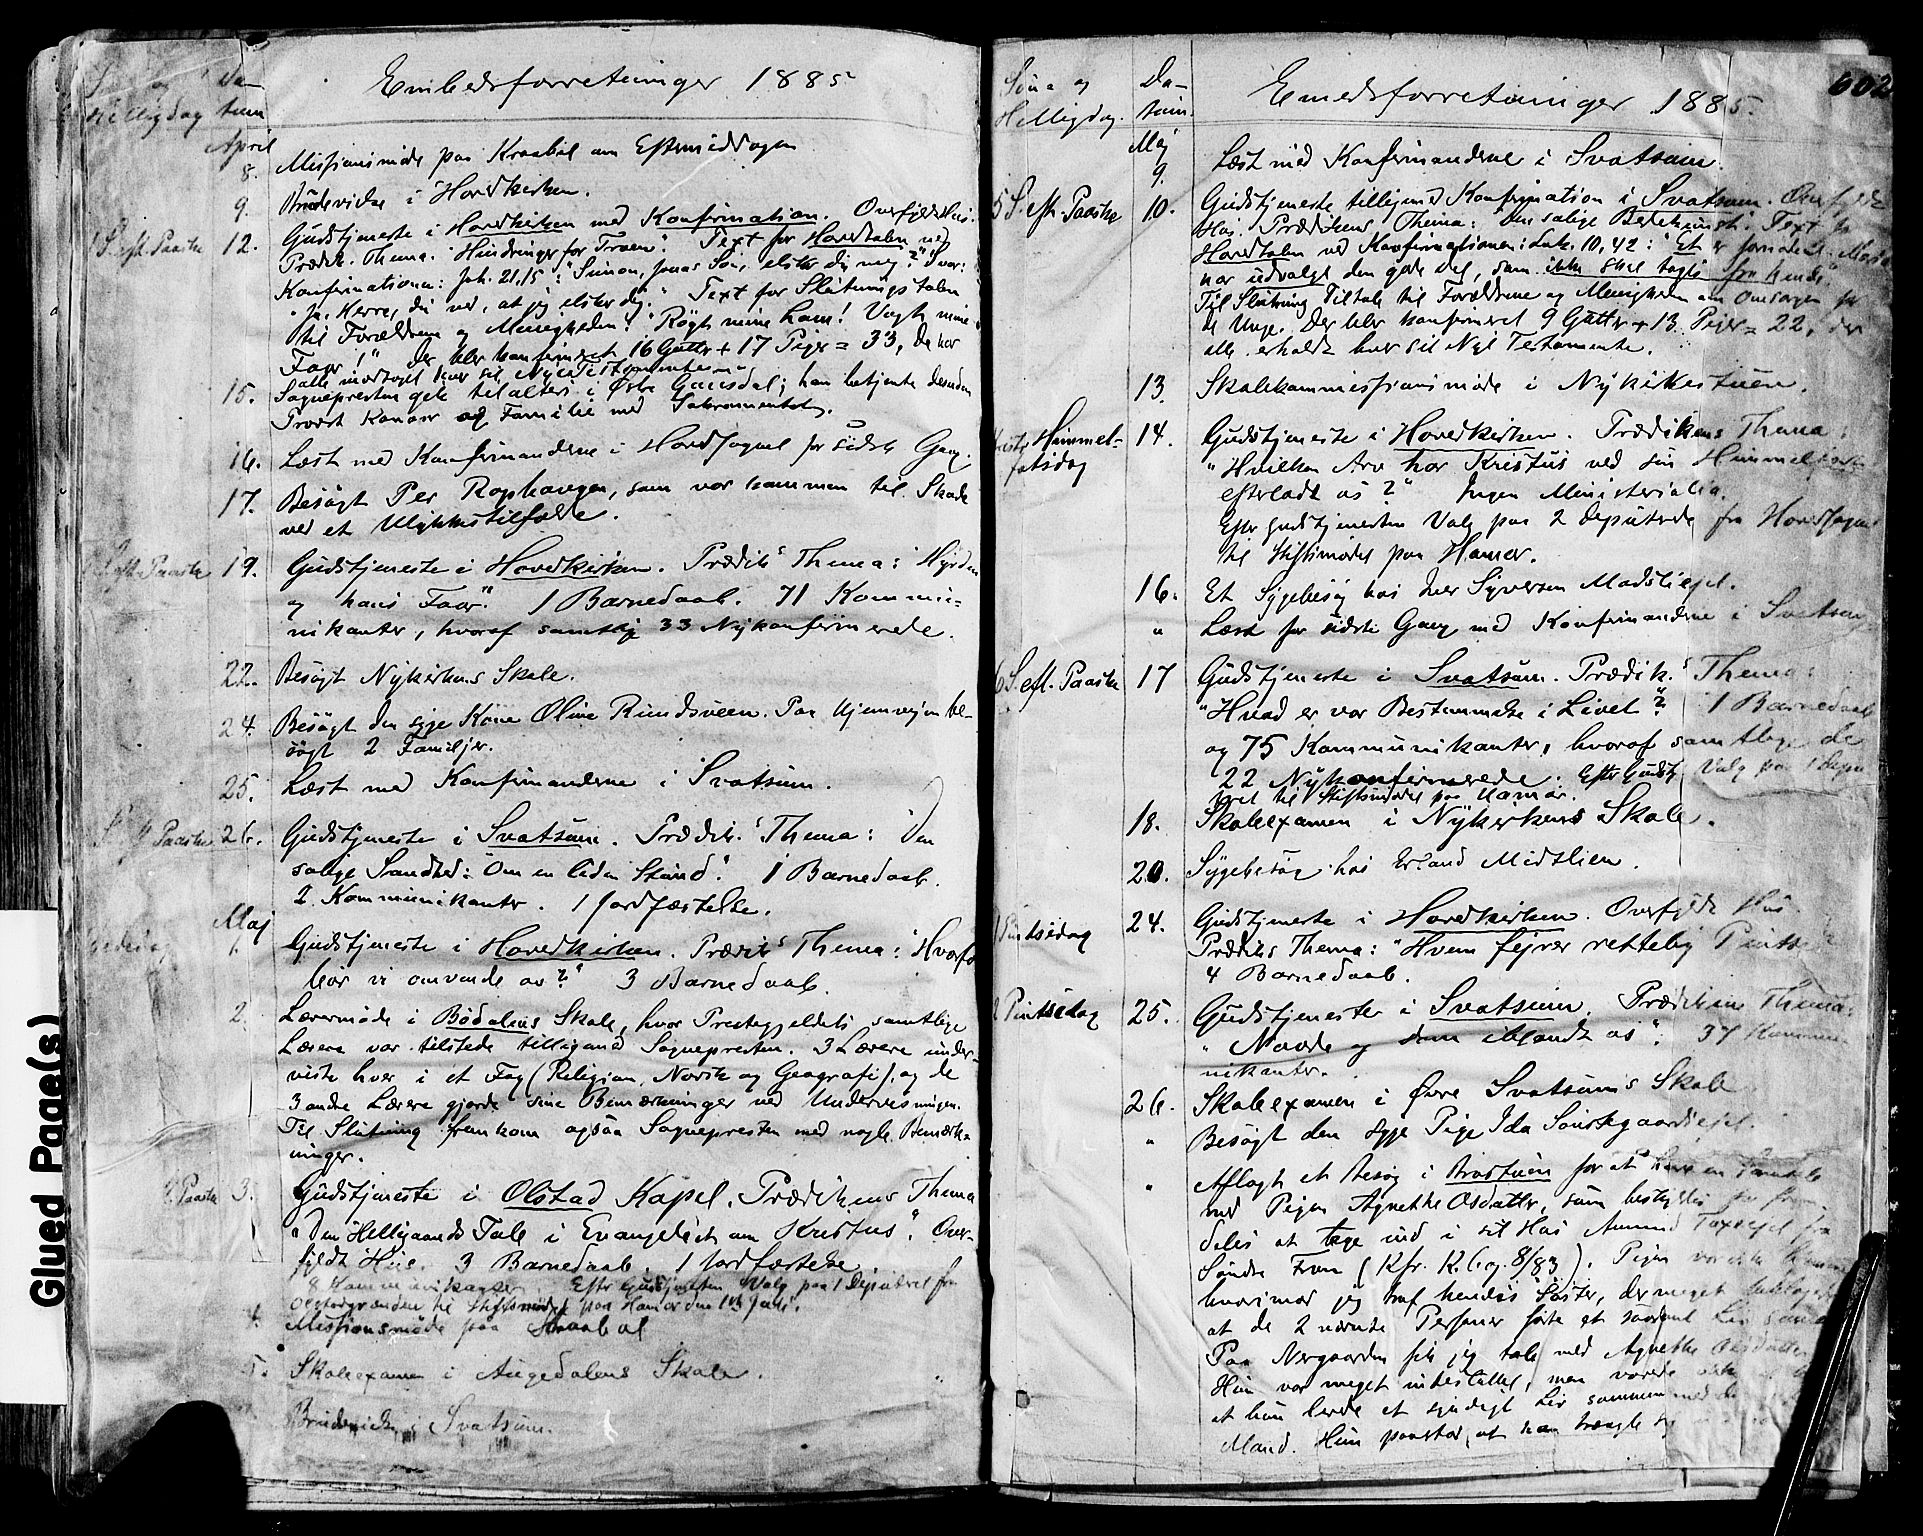 Helligdag
Datum
Embedsforretninger 1885
April
8. Missionsmøde paa Kraabøl om Eftermiddagen
9. Brudevielse i Hovedkirken.
S. eft. Paaske 12. Gudstjeneste i Hovedkirken med Konfirmation. Overfyldt Hus.
Prædik. Thema: "Hindringer for Troen". Text for Hovedtalen ved
Konfirmationen: Joh. 21,15: "Simon, Jonas Søn, elsker du mig?" Svar:
"Ja, Herre, du ved, at jeg elsker dig." Text for Slutningstalen
til Forældrene og Menigheden: "Røgt mine Lam! Vogt mine
Faar!" Der blev konfirmeret 16 Gutter + 17 Piger = 33, der har
alle modtaget hver sit Nye Testamente
15. Sognepresten gik til alters i Østre Gausdal; han betjente desuden
Provst Kanarr og Familie med Sakramentet.
16. Læst med Konfirmanderne i Hovedsognet for sidste Gang.
17. Besøgt Per Rophaugen, som var kommen til Skade
ved et Ulykkestilfælde.
S. eft. Paaske 19. Gudstjeneste i Hovedkirken. Prædik.s Thema: "Hyrden
og hans Faar". 1 Barnedaab. 71 Kommu-
nikanter, hvoraf samtlige 33 Nykonfirmerede.
22. Besøgt Nykirkens Skole.
24. Besøgt den syge Kone Oline Rundsveen. Paa Hjemvejen be-
søgt 2 Familjer.
25. Læst med Konfirmanderne i Svatsum.
Paaske 26. Gudstjeneste i Svatsum. Prædik.s Thema: "Den
salige Sandhed: Om en liden Stund". 1 Barnedaab.
2 Kommunikanter. 1 Jordfæstelse.
Maj
1. Gudstjeneste i Hovedkirken. Prædik.s Thema: "Hvorfor
bør vi omvende os?" 3 Barnedaab.
2. Lærermøde i Bødalens Skole, hvor Prestegjeldets samtlige
Lærere var tilstede tilligemed Sognepresten. 3 Lærere under-
viste hver i et Fag (Religion, Norsk og Geografi), og de
3 andre Lærere gjorde sine Bemærkninger ved Undervisningen.
Til Slutning fremkom ogsaa Sognepresten med nogle Bemærk-
ninger.
Paaske 3. Gudstjeneste i Olstad Kapel. Prædikens Thema
"Den Helligaands Tale i Evangeliet om Kristus". Over-
fyldt Hus. 3 Barnedaab. 1 Jordfæstelse.
8 Kommunikanter. Efter Gudstjenesten Valg paa 1 Deputeret fra
Olstadgrænden til Stiftsmødet paa Hamar den Juli.
4. Missionsmøde paa Kraabøl
5. Skoleexamen i Augedalens Skole.
Brudevielse i Svatsum.
Glued Page(s)
602
Søn- og
Helligdag.
Da-
tum.
Emedsforretninger 1885.
Maj
9. Læst med Konfirmanderne i Svatsum.
5 S. eft. Paaske 10. Gudstjeneste tilligemed Konfirmation i Svatsum. Overfyldt
Hus. Prædikens Thema: "Den salige Bedekunst". Text for
Hovedtalen ved Konfirmationen: Luk. 10,42: "Et er fornødent. Maria
har udvalgt den gode Del, som ikke skal tages fra hende".
Til Slutning Tiltale til Forældrene og Menigheden om Omsorgen for
de Unge. Der blev konfirmeret 9 Gutter + 13 Piger = 22, der
alle erholdt hver sit Nyt Testamente.
13. Skolekommissionsmøde i Nykirkestuen.
Kristi Himmel-
fartsdag 14. Gudstjeneste i Hovedkirken. Prædikens Thema:
"Hvilken Arv har Kristus ved sin Himmelfart
efterladt os?" Ingen Ministerialia.
Efter Gudstjenesten Valg paa 2 Deputerede fra Hovedsognet
til Stiftsmødet paa Hamar.
16. Et Sygebesøg hos Iver Syversen Madsliejet.
" Læst for sidste Gang med Konfirmanderne i Svatsum
6 S. eft. Paaske 17 Gudstjeneste i Svatsum. Prædik.s Thema:
"Hvad er vor Bestemmelse i Livet"? 1 Barnedaab
og 75 Kommunikanter, hvoraf samtlige de
22 Nykonfirmerede. Efter Gudstj. Valg paa 1 Depu-
teret til Stiftsmødet paa Hamar.
18. Skoleexamen i Nykirkens Skole.
20. Sygebesøg hos Erland Midtlien.
1 Pintsedag 24. Gudstjeneste i Hovedkirken. Overfyldt Hus.
Prædik.s Thema: "Hvem fejrer rettelig Pintse
4 Barnedaab.
2 Pintsedag 25. Gudstjeneste i Svatsum. Prædikens Thema:
"Naade og iblandt os". 37 Kommu-
nikanter.
26. Skoleexamen i Øvre Svatsums Skole
" Besøgt den syge Pige Ida Sørskgaardsejet.
" Aflagt et Besøg i Brostuen for at have en Samtale
med Pigen Agnethe Olsdatter, som beskyldtes for frem-
deles at tage ind i sit Hus Amund Taxsejet fra
Søndre Fron (Kfr. K.bog. 8/83). Pigen var ikke hjemme
hvorimod jeg traf hendes Søster, der meget beklagede
at de 2 nævnte Personer førte et saadant Liv sammen
Paa Nergaarden fik jeg tale med Agnethe Olsdatter
Hun var meget ubestaltet, men
at hun levede et syndigt Liv sammen med
Mand. Hun paastod, at han trængte sig